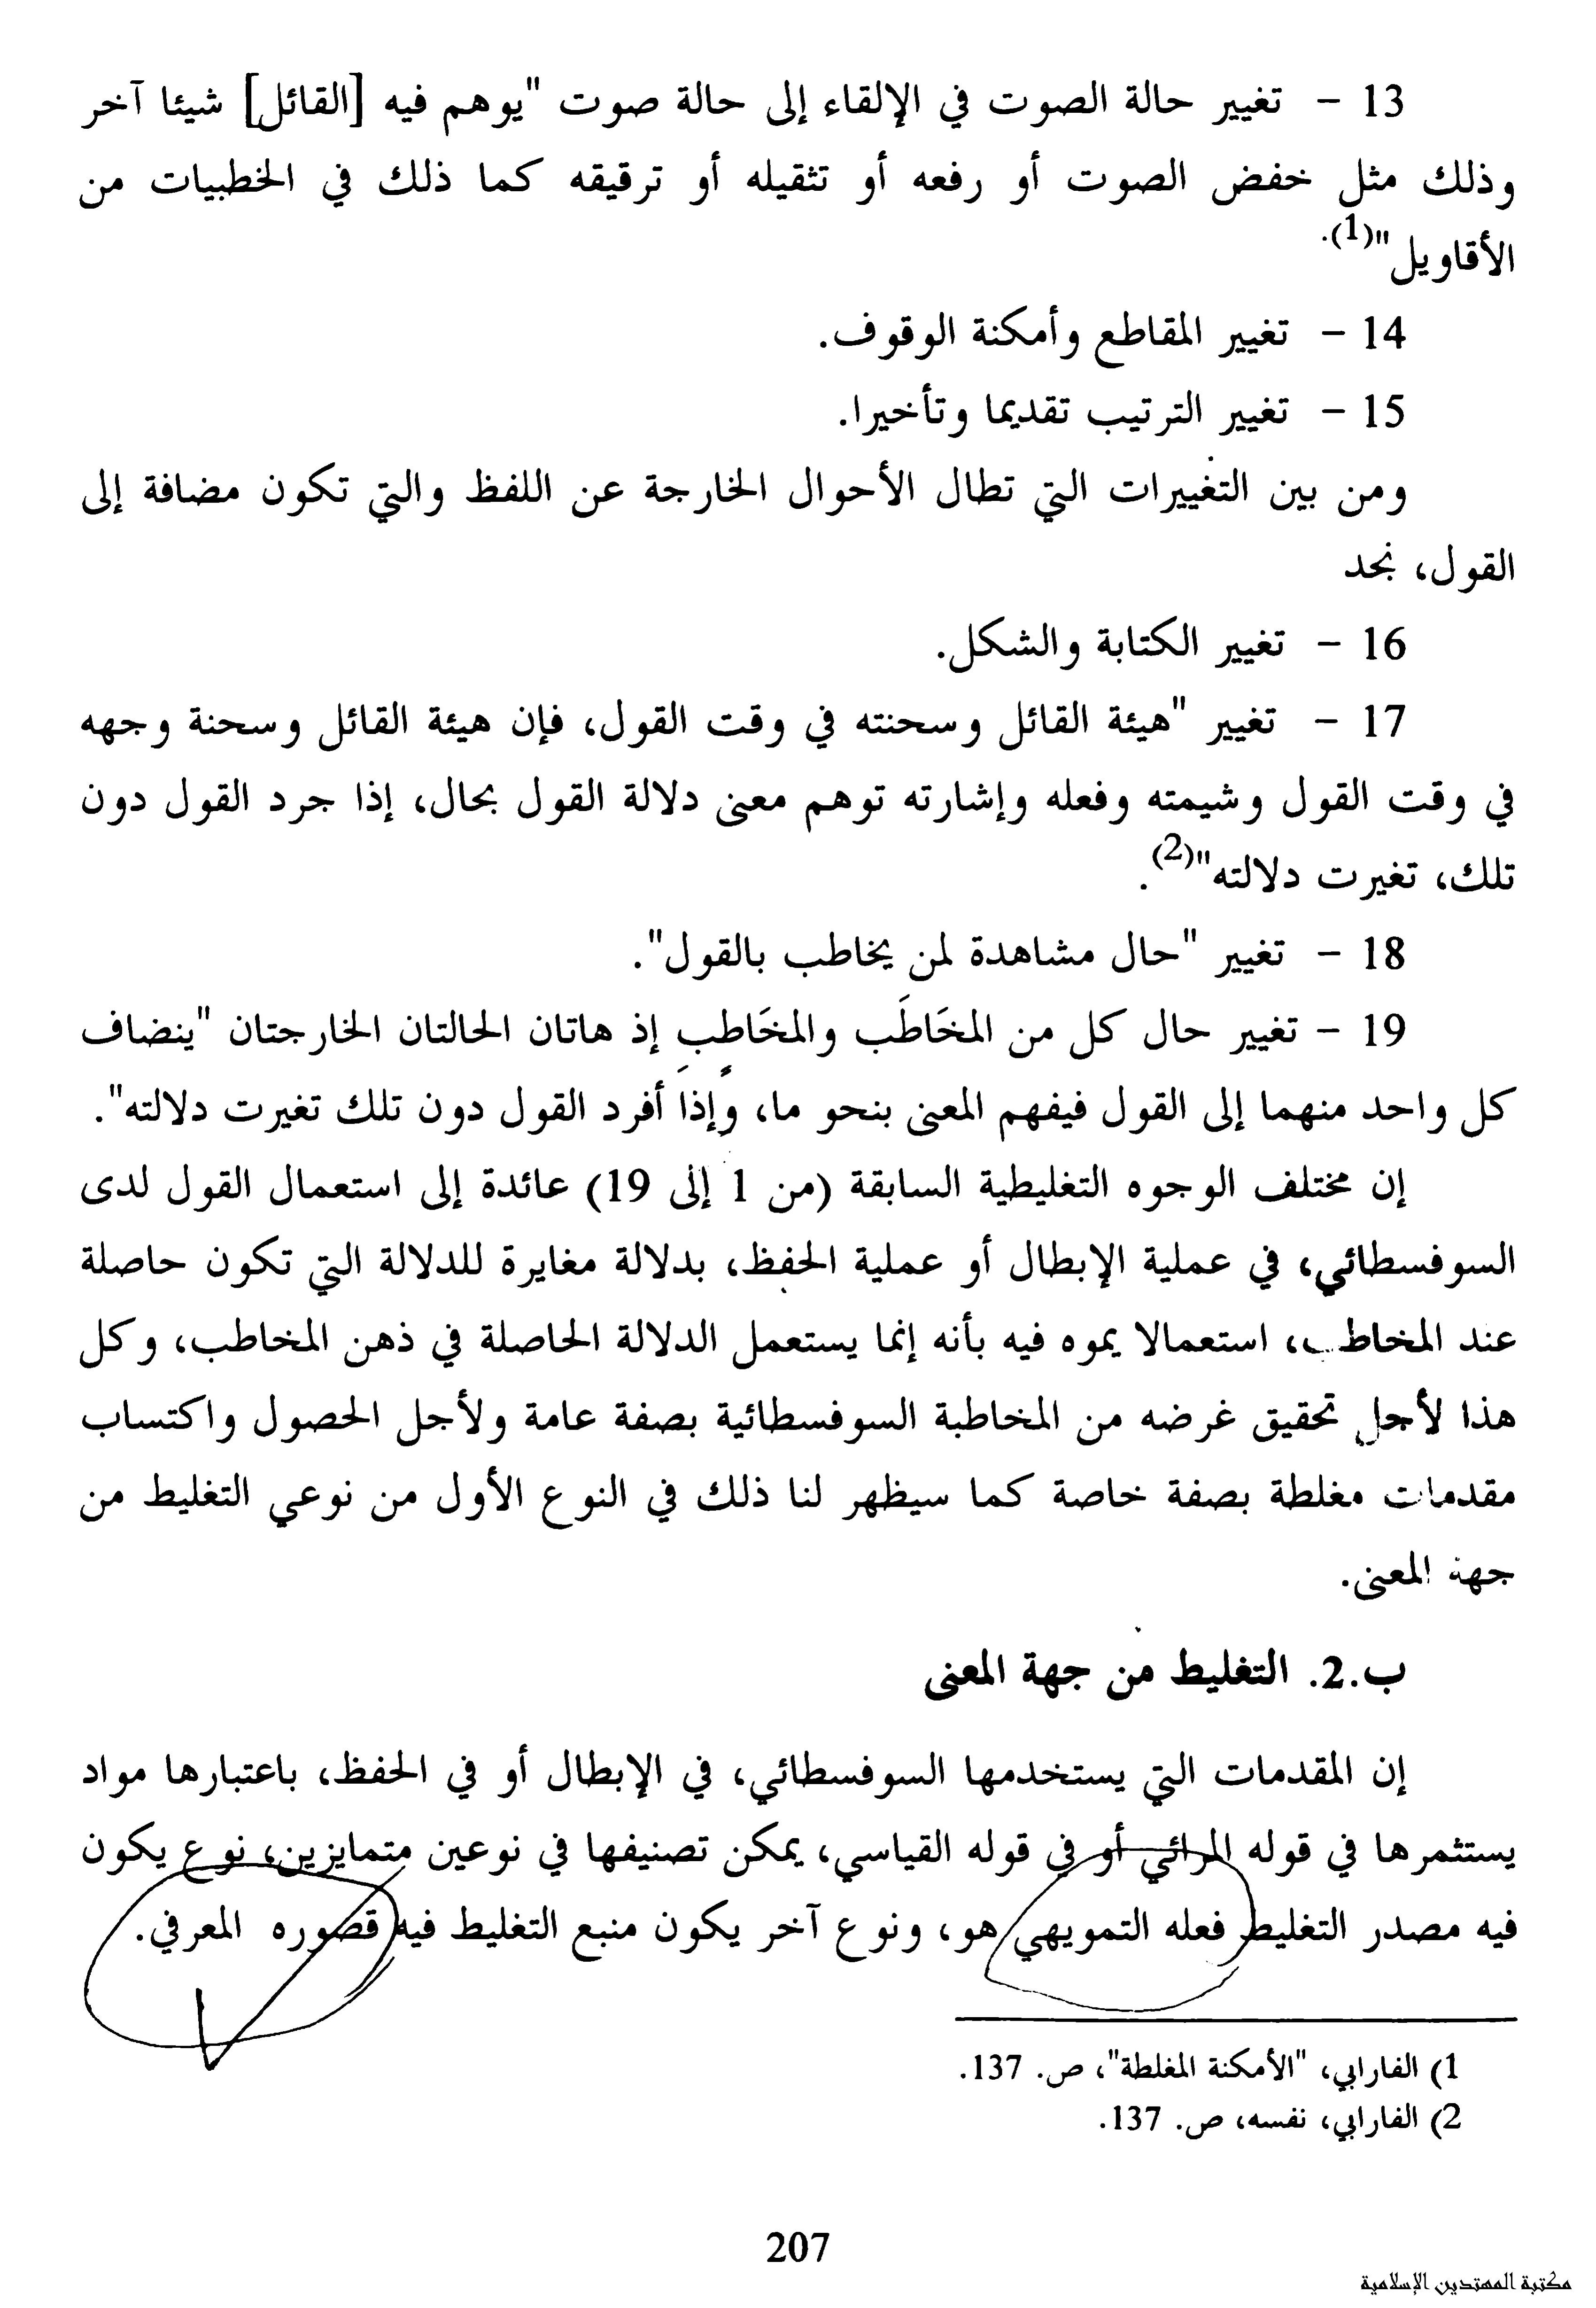 13 - تغيير حالة الصوت في الإلقاء إلى حالة صوت "يوهم فيه [القائل] شيئا آخر
وذلك مثل خفض الصوت أو رفعه أو تثقيله أو ترقيقه كما ذلك في الخطبيات من
الأقاويل"(1).
14 - تغيير المقاطع وأمكنة الوقوف.
15 - تغيير الترتيب تقديما وتأخيرا.
ومن بين التغييرات التي تطال الأحوال الخارجة عن اللفظ والتي تكون مضافة إلى
القول، نجد
16 - تغيير الكتابة والشكل.
17 - تغيير "هيئة القائل وسحنته في وقت القول، فإن هيئة القائل وسحنة وجهه
في وقت القول وشيمته وفعله وإشارته توهم معنى دلالة القول بحال، إذا جرد القول دون
تلك، تغيرت دلالته"(2).
18 - تغيير "حال مشاهدة لمن يخاطب بالقول".
19 - تغيير حال كل من المخَاطَب والمخَاطِبِ إذ هاتان الحالتان الخارجتان "ينضاف
كل واحد منهما إلى القول فيفهم المعنى بنحو ما، وإذا أفرد القول دون تلك تغيرت دلالته".
إن مختلف الوجوه التغليطية السابقة (من 1 إلى 19) عائدة إلى استعمال القول لدى
السوفسطائي، في عملية الإبطال أو عملية الحفظ، بدلالة مغايرة للدلالة التي تكون حاصلة
عند المخاطب، استعمالا يموه فيه بأنه إنما يستعمل الدلالة الحاصلة في ذهن المخاطب، وكل
هذا لأجل تحقيق غرضه من المخاطبة السوفسطائية بصفة عامة ولأجل الحصول واكتساب
مقدمات مغلطة بصفة خاصة كما سيظهر لنا ذلك في النوع الأول من نوعي التغليط من
جهة المعنى.
ب.2. التغليط من جهة المعنى
إن المقدمات التي يستخدمها السوفسطائي، في الإبطال أو في الحفظ، باعتبارها مواد
يستثمرها في قوله المرائي أو في قوله القياسي، يمكن تصنيفها في نوعين متمايزين، نوع يكون
فيه مصدر التغليط فعله التمويهي هو، ونوع آخر يكون منبع التغليط فيه قصوره المعرفي.
1) الفارابي، "الأمكنة المغلطة"، ص. 137.
2) الفارابي، نفسه، ص. 137.
207
مكتبة المهتدين الإسلامية